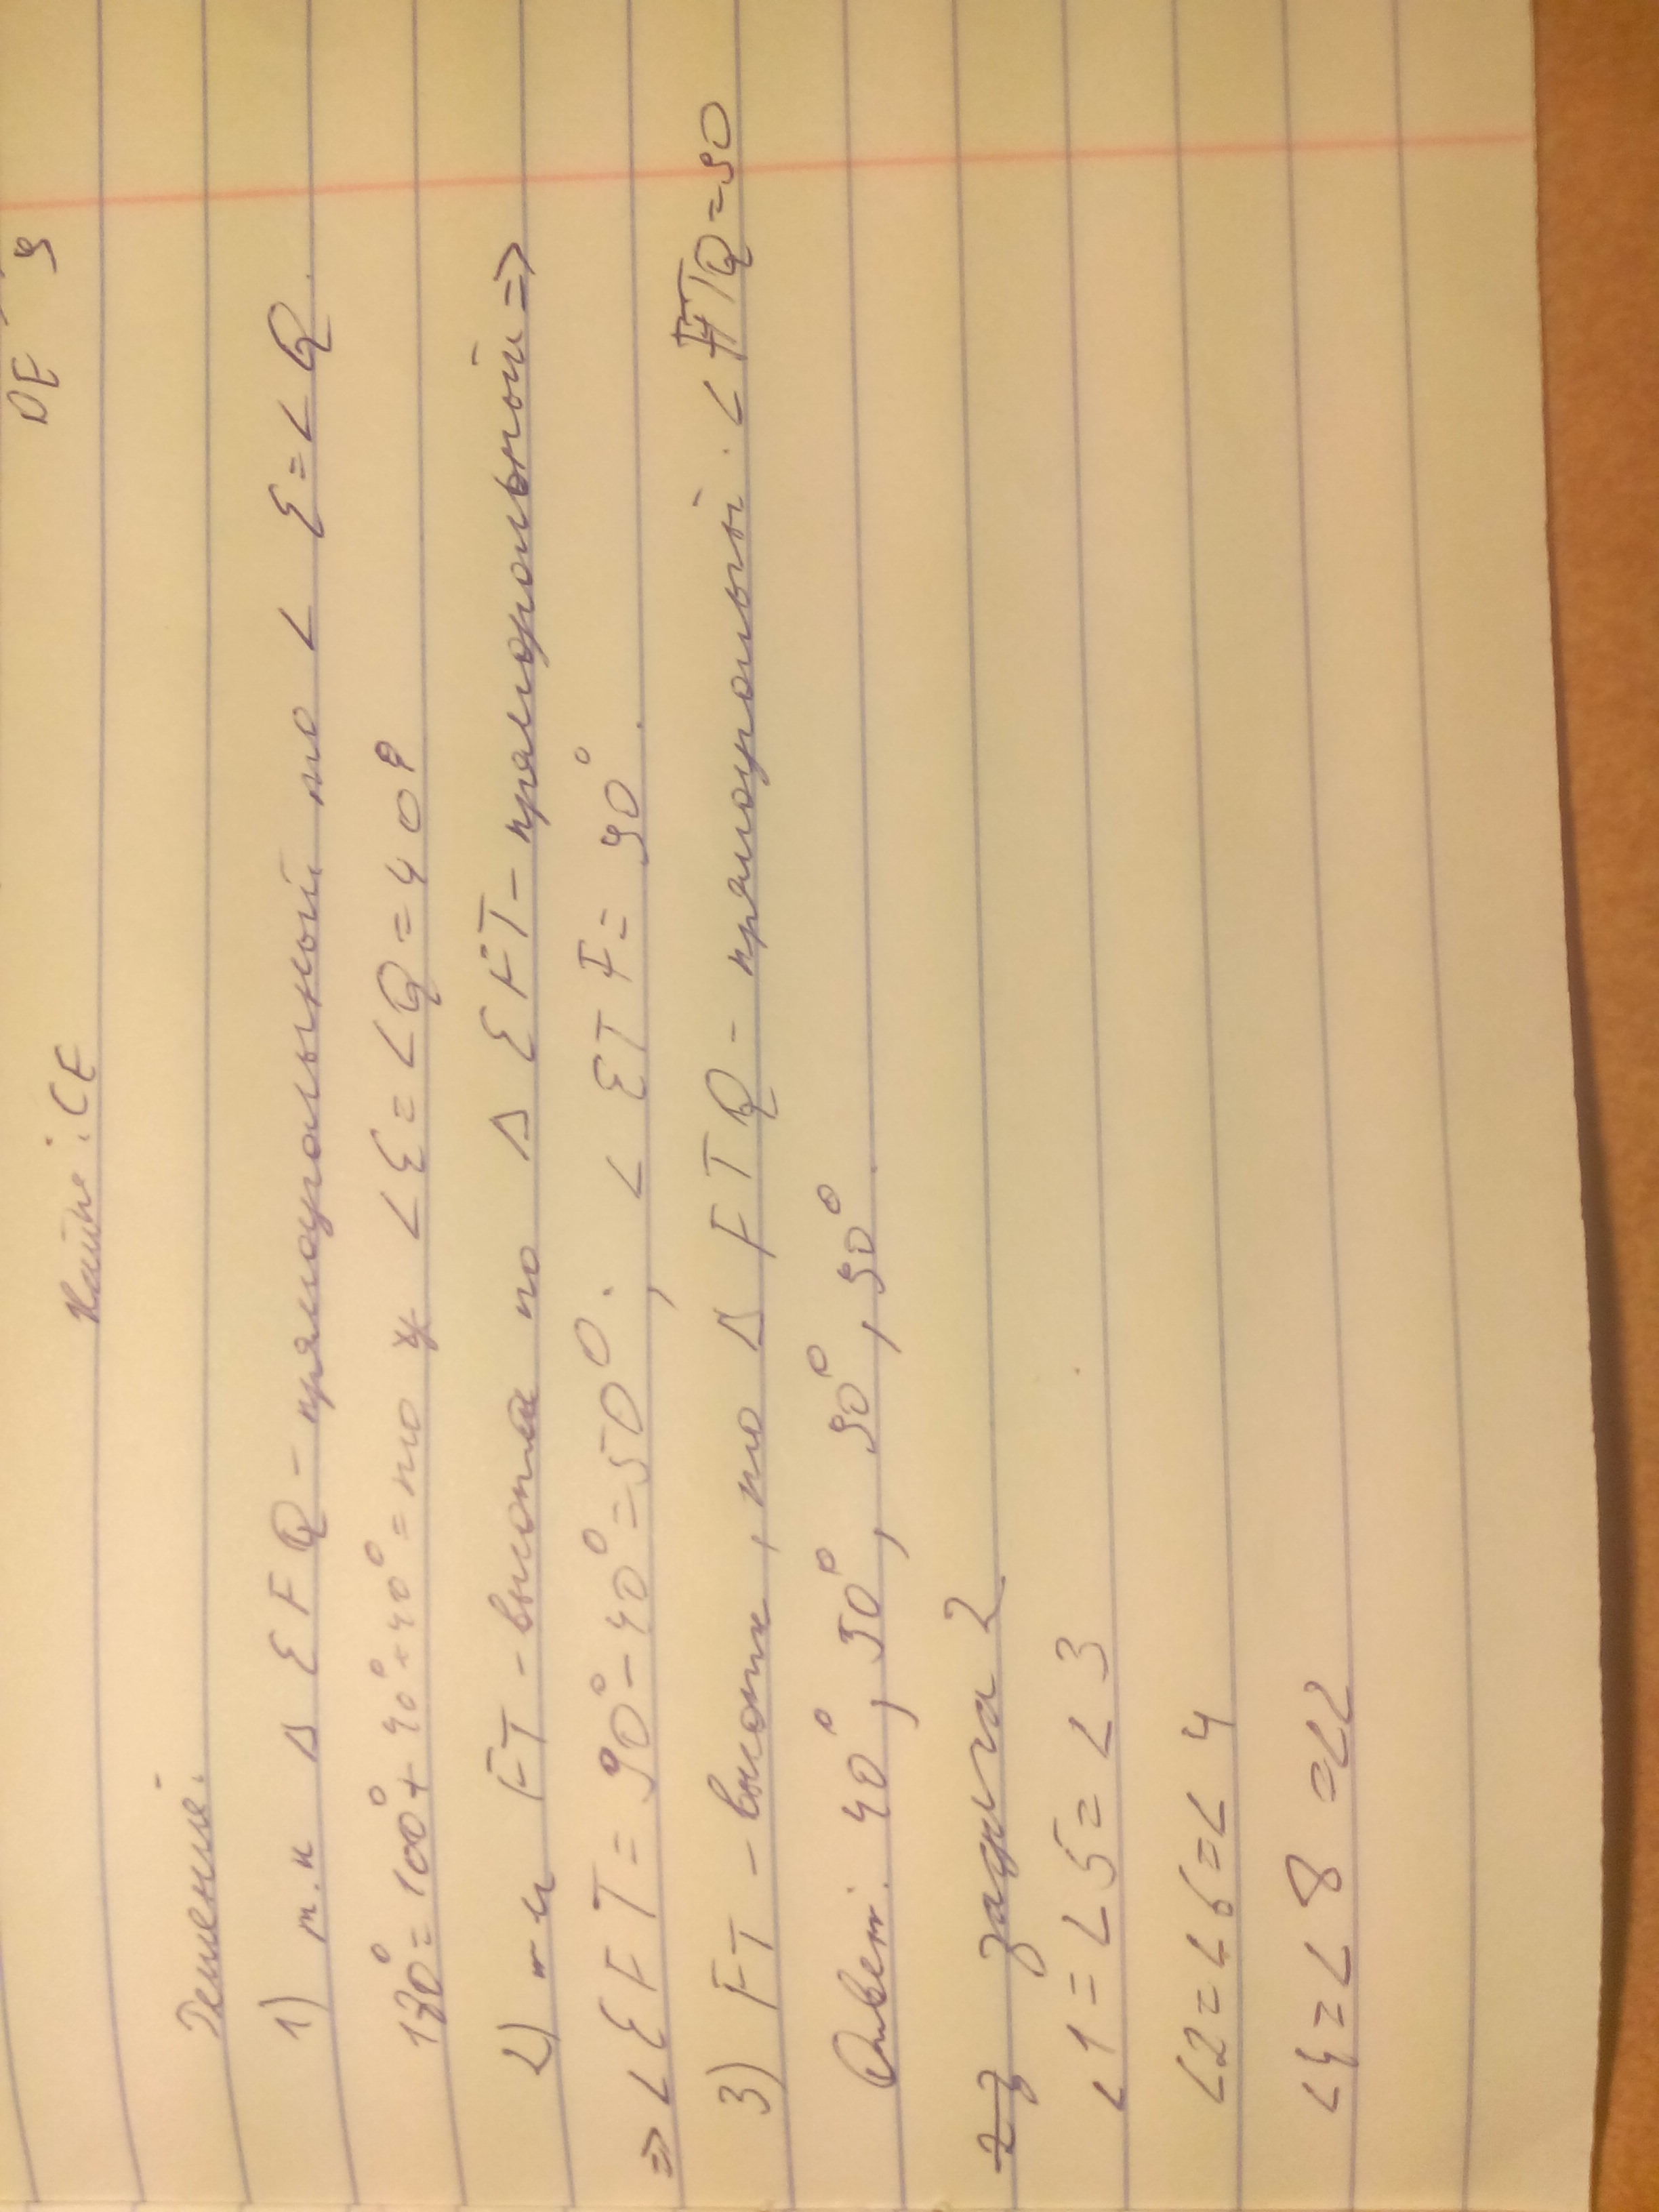 DE 9
Найти: CE
Решение.
1) т.к Δ EFQ - прямоугольный то < E = < Q.
180° = 100° + 40° + 40° = то у <E = <Q = 40°
2) т к FT - высота то Δ EFT - прямоугольный =>
=> <EFT = 90° - 40° = 50°. , < ETF = 90°.
3) FT - высота, то Δ FTQ - прямоуголый. < FTQ = 90
Ответ: 40°, 50°, 90°, 90°.
задача 2
<1 = <5 = <3
<2 = <6 = <4
<4 = <8 = <2